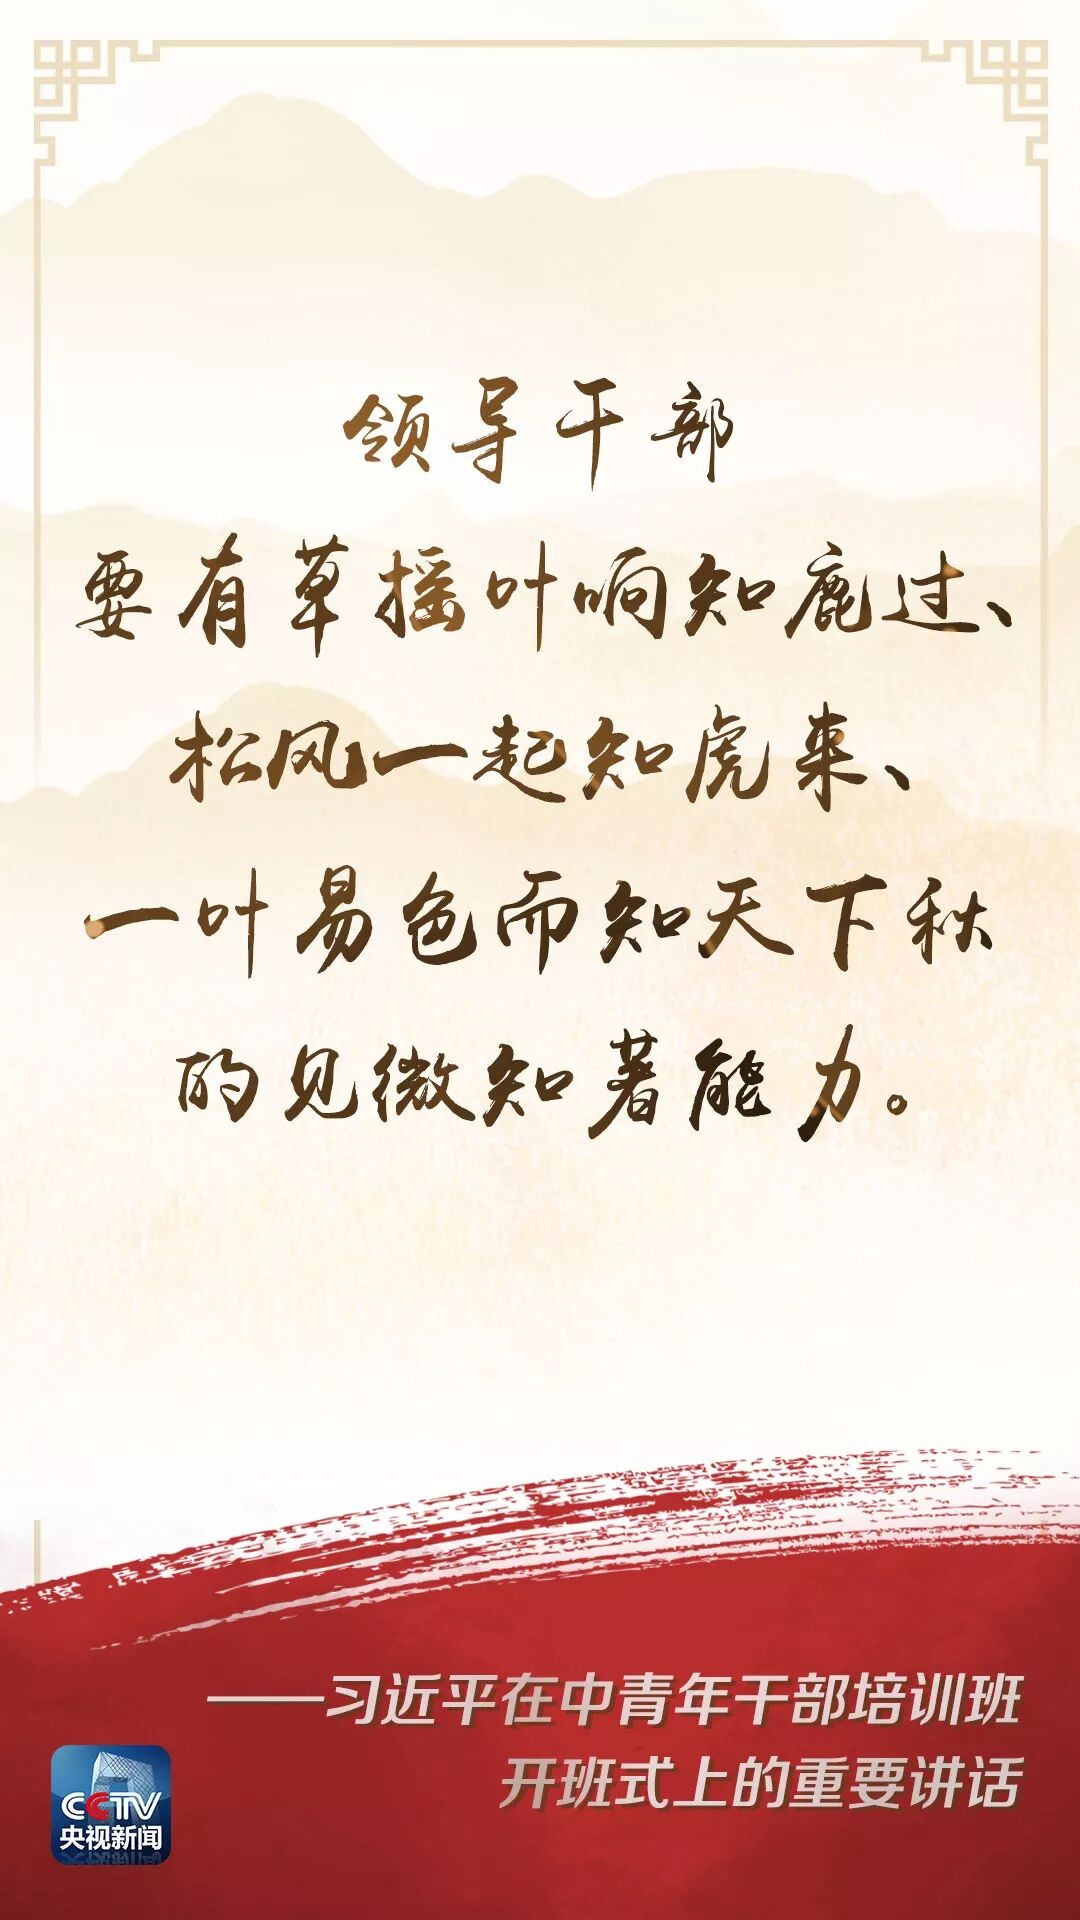 领导干部
要有草摇叶响知鹿过、
松风一起知虎来、
一叶易色而知天下秋
的见微知著能力。
——习近平在中青年干部培训班
开班式上的重要讲话
CCTV
央视新闻